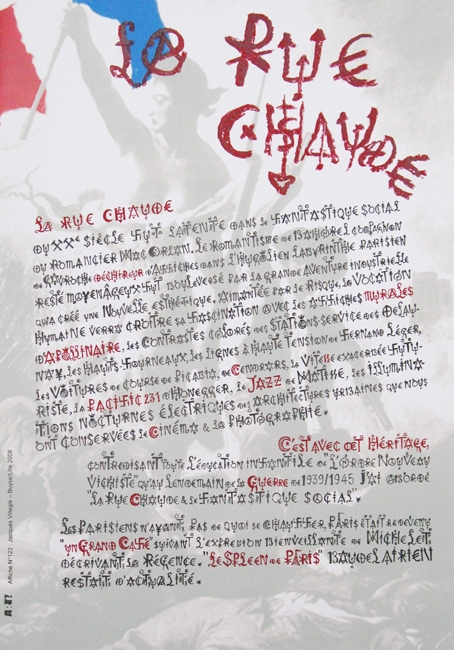 LA RUE
CHAUDE
LA RUE CHAUDE
DU XXe SIÈCLE FUT LATENTE DANS LE FANTASTIQUE SOCIAL
DU ROMANCIER MAC ORLAN. LE ROMANTISME DE BAHOREL COMPAGNON
DE GAVROCHE DÉCHIREUR D'AFFICHES DANS L'HUGOLIEN LABYRINTHE PARISIEN
RESTÉ MOYENÂGEUX FUT BOULEVERSÉ PAR LA GRANDE AVENTURE INDUSTRIELLE
QUI A CRÉÉ UNE NOUVELLE ESTHÉTIQUE. AIMANTÉE PAR LE RISQUE, LA VOCATION
HUMAINE VERRA CROÎTRE SA FASCINATION AVEC LES AFFICHES MURALES
D'APOLLINAIRE, LES CONTRASTES COLORÉS DES STATIONS-SERVICE DES DELAU-
NAY, LES HAUTS-FOURNEAUX, LES LIGNES À HAUTE TENSION DE FERNAND LÉGER,
LES VOITURES DE COURSE DE PICABIA, DE CENDRARS, LA VITESSE EXACERBÉE FUTU-
RISTE, LA PACIFIC 231 D'HONEGGER, LE JAZZ DE MATISSE, LES ILLUMINA-
TIONS NOCTURNES ÉLECTRIQUES DES ARCHITECTURES URBAINES QUE NOUS
ONT CONSERVÉES LE CINÉMA & LA PHOTOGRAPHIE.
C'EST AVEC CET HÉRITAGE,
CONTREDISANT TOUTE L'ÉDUCATION INFANTILE DE "L'ORDRE NOUVEAU
VICHISTE" QU'AU LENDEMAIN DE LA GUERRE DE 1939/1945 J'AI ABORDÉ
"LA RUE CHAUDE & LE FANTASTIQUE SOCIAL".
LES PARISIENS N'AYANT, PAS DE QUOI SE CHAUFFER, PARIS ÉTAIT REDEVENU
"UN GRAND CAFÉ" SUIVANT L'EXPRESSION BIENVEILLANTE DE MICHELET
DÉCRIVANT LA RÉGENCE. "LE SPLEEN DE PARIS" BAUDELAIRIEN
RESTAIT D'ACTUALITÉ.
Affiche N°122 . Jacques Villeglé – Buysse/Lille 2008